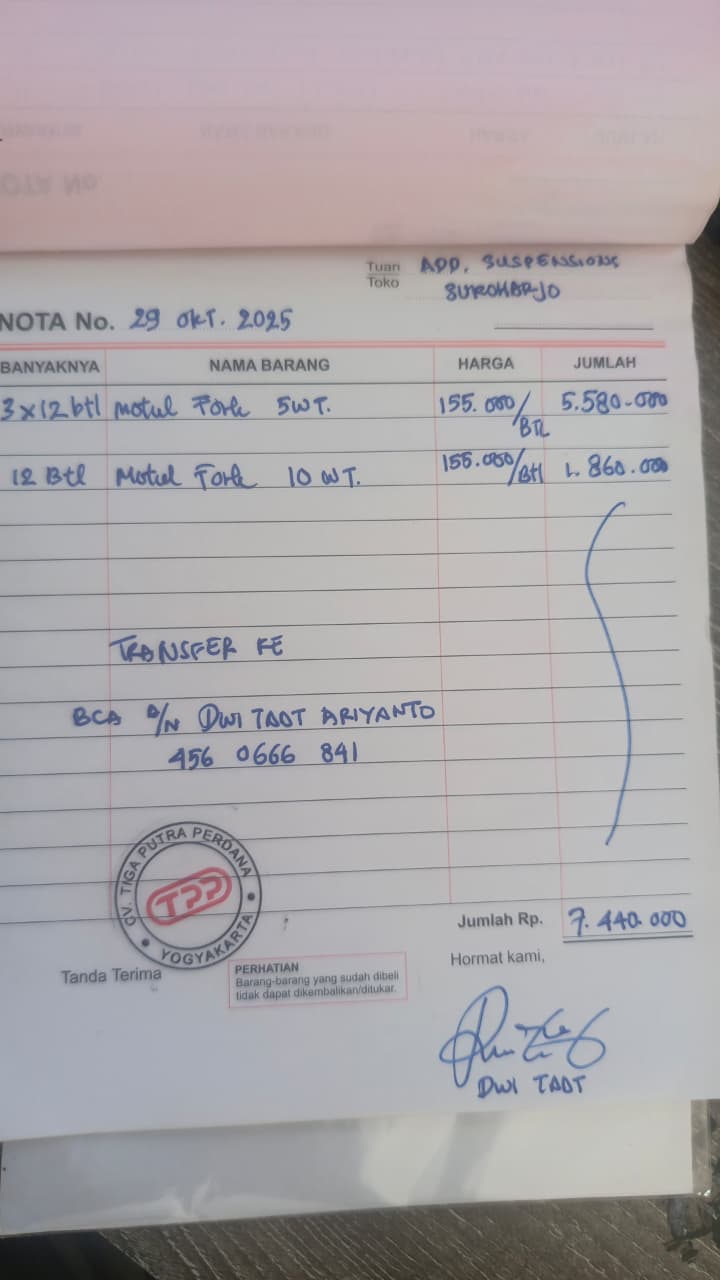 Tuan
Toko
ADD. SUSPENSIONS
SUROHARJO
NOTA No. 29 OKT. 2025
BANYAKNYA NAMA BARANG HARGA JUMLAH
3x12 btl Motul Fork 5WT. 155.000/BTL 5.580.000
12 Btl Motul Fork 10 WT. 155.000/Btl 1.860.000
TRANSFER KE
BCA A/N DWI TADT ARIYANTO
456 0666 841
CV. TIGA PUTRA PERDANA
TPP
YOGYAKARTA
Jumlah Rp. 7.440.000
Tanda Terima
PERHATIAN
Barang-barang yang sudah dibeli
tidak dapat dikembalikan/ditukar.
Hormat kami,
DWI TADT